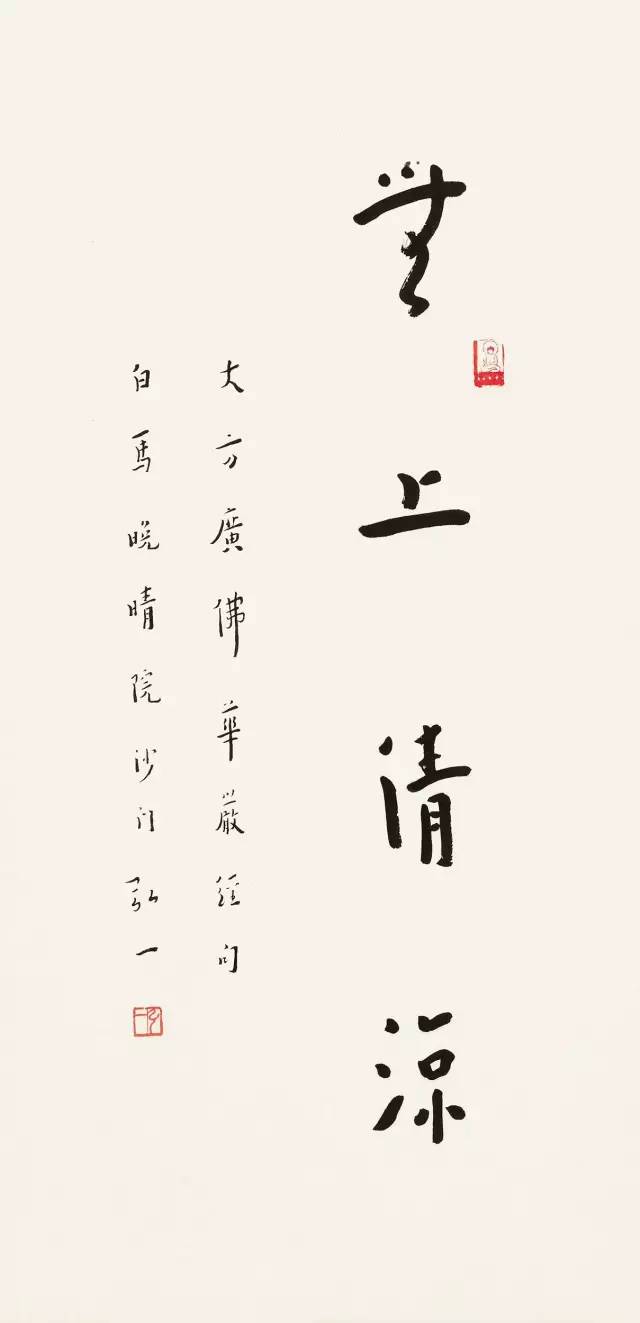 無上清涼
大方廣佛華嚴經句
白馬晚晴院沙门弘一
弘一